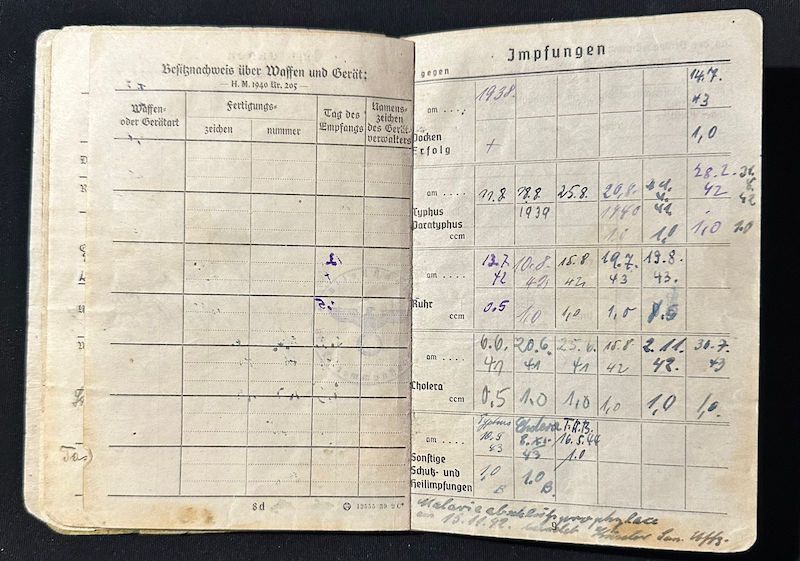 Besitznachweis über Waffen und Gerät:
— H. M. 1940 Nr. 205 —
Waffen-
oder Gerätart
Fertigungs-
zeichen
nummer
Tag des
Empfangs
Namens-
zeichen
des Gerät-
verwalters
8d
Impfungen
gegen
1938.
14.7.
am ....
43
Pocken
Erfolg
+
1,0
am ....
11.8. 18.8. 25.8. 28.2.
1939 1940 42 42
Typhus
Paratyphus
ccm
1,0 1,0 1,0
am ....
13.7. 10.8. 15.8. 19.7. 13.8.
42 42 42 43 43.
Ruhr
ccm
0.5 1,0 1,0 1,0
am ....
6.6. 20.6. 25.6. 15.8. 2.11. 30.7.
41 41 41 42 42. 43
Cholera
ccm
0,5 1,0 1,0 1,0 1,0 1,0
Typhus Cholera T.A.B.
am ....
10.9. 16.5.44
43 43 1.0
Sonstige
Schutz- und
Heilimpfungen
1,0 1.0
B B.
Malaria
am 15.11.42. San. Uffz.